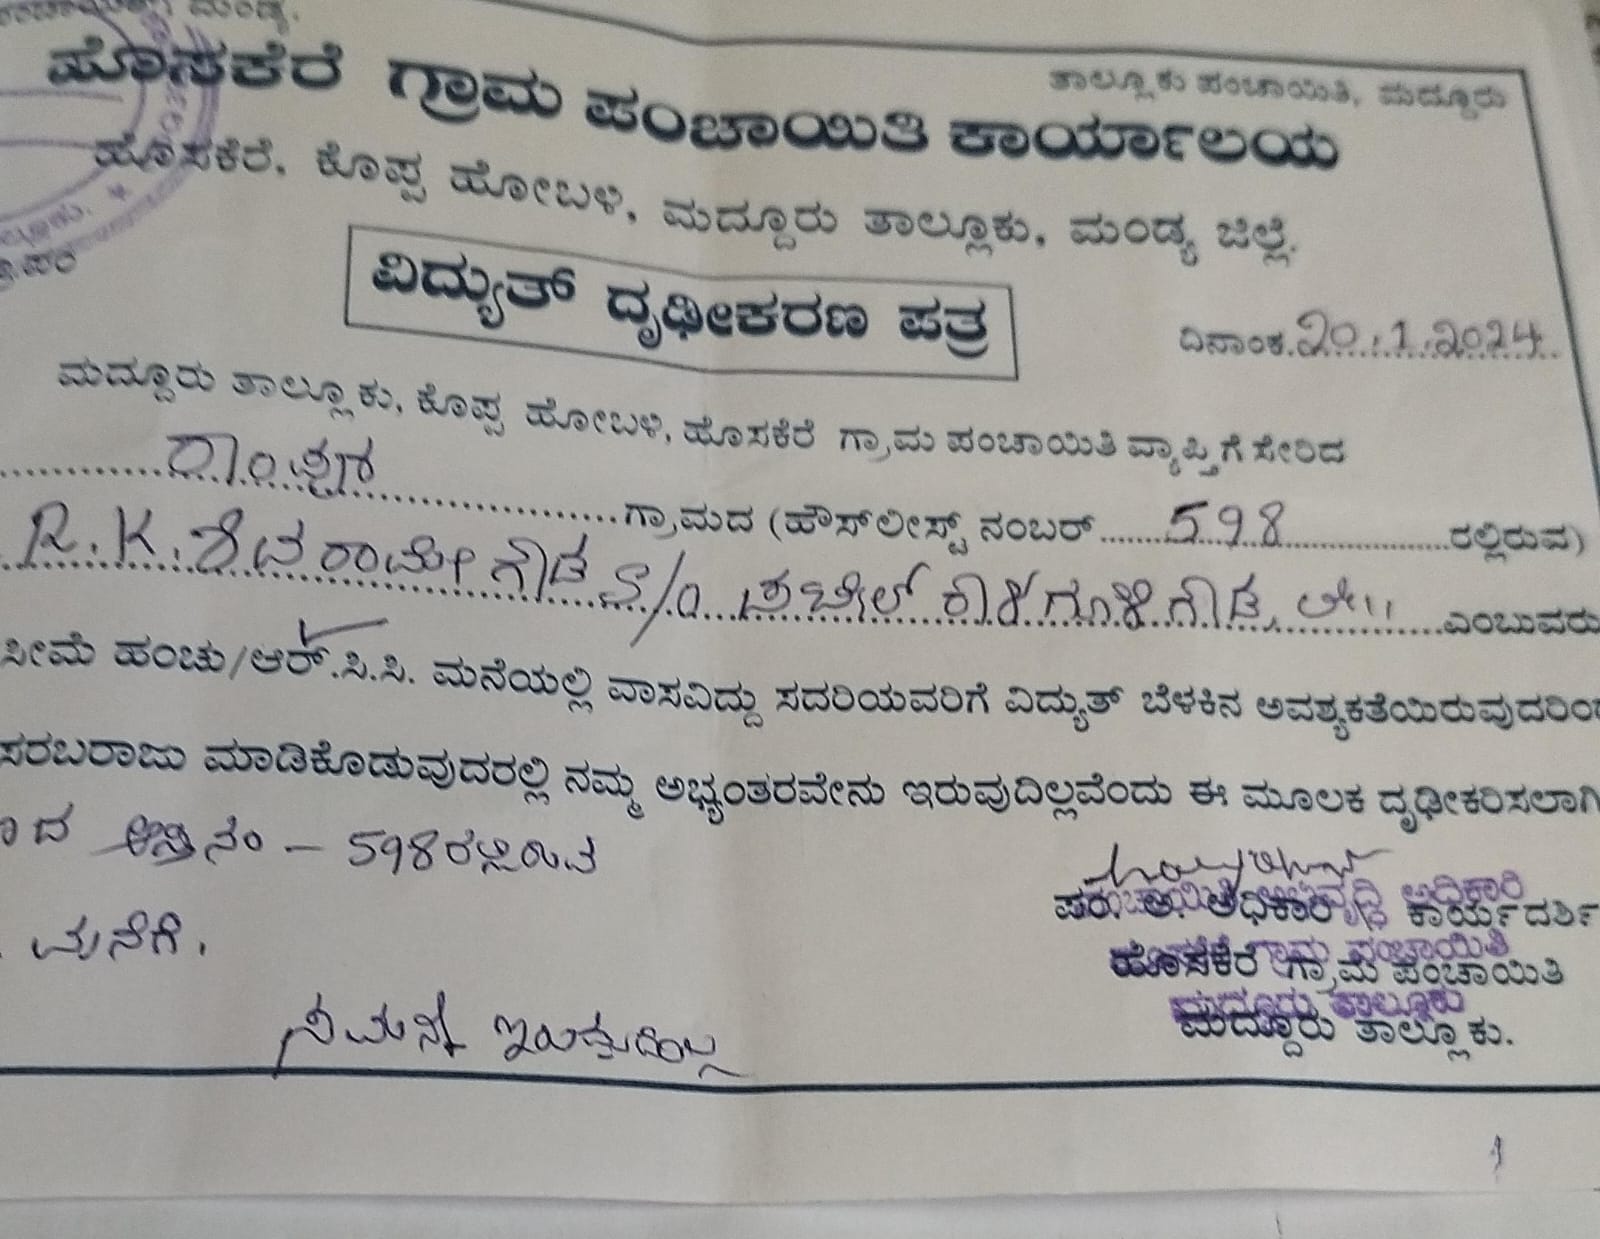 ಮಂಡ್ಯ.
ತಾಲ್ಲೂಕು ಪಂಚಾಯಿತಿ, ಮದ್ದೂರು
ಹೊಸಕೆರೆ ಗ್ರಾಮ ಪಂಚಾಯಿತಿ ಕಾರ್ಯಾಲಯ
ಹೊಸಕೆರೆ, ಕೊಪ್ಪ ಹೋಬಳಿ, ಮದ್ದೂರು ತಾಲ್ಲೂಕು, ಮಂಡ್ಯ ಜಿಲ್ಲೆ.
ವಿದ್ಯುತ್ ದೃಢೀಕರಣ ಪತ್ರ
ದಿನಾಂಕ. 20.1.2024
ಮದ್ದೂರು ತಾಲ್ಲೂಕು, ಕೊಪ್ಪ ಹೋಬಳಿ, ಹೊಸಕೆರೆ ಗ್ರಾಮ ಪಂಚಾಯಿತಿ ವ್ಯಾಪ್ತಿಗೆ ಸೇರಿದ
ರಾಂಪುರ ಗ್ರಾಮದ (ಹೌಸ್‌ಲೀಸ್ಟ್ ನಂಬರ್ 598 ರಲ್ಲಿರುವ)
R.K. ಶಿವರಾಮೇಗೌಡ S/o ಪಟೇಲ್ ಎಂಬುವರು
ಸೀಮೆ ಹಂಚು/ಆರ್.ಸಿ.ಸಿ. ಮನೆಯಲ್ಲಿ ವಾಸವಿದ್ದು ಸದರಿಯವರಿಗೆ ವಿದ್ಯುತ್ ಬೆಳಕಿನ ಅವಶ್ಯಕತೆಯಿರುವುದರಿಂದ
ಸರಬರಾಜು ಮಾಡಿಕೊಡುವುದರಲ್ಲಿ ನಮ್ಮ ಅಭ್ಯಂತರವೇನು ಇರುವುದಿಲ್ಲವೆಂದು ಈ ಮೂಲಕ ದೃಢೀಕರಿಸಲಾಗಿ
ಆಸ್ತಿ ನಂ - 598 ರಲ್ಲಿರುವ
ಮನೆಗೆ.
ಪಂಚಾಯಿತಿ ಅಭಿವೃದ್ಧಿ ಅಧಿಕಾರಿ
ಪಂ. ಅ. ಅಧಿಕಾರಿ / ಕಾರ್ಯದರ್ಶಿ
ಹೊಸಕೆರೆ ಗ್ರಾಮ ಪಂಚಾಯಿತಿ
ಹೊಸಕೆರೆ ಗ್ರಾಮ ಪಂಚಾಯಿತಿ
ಮದ್ದೂರು ತಾಲ್ಲೂಕು
ಮದ್ದೂರು ತಾಲ್ಲೂಕು.